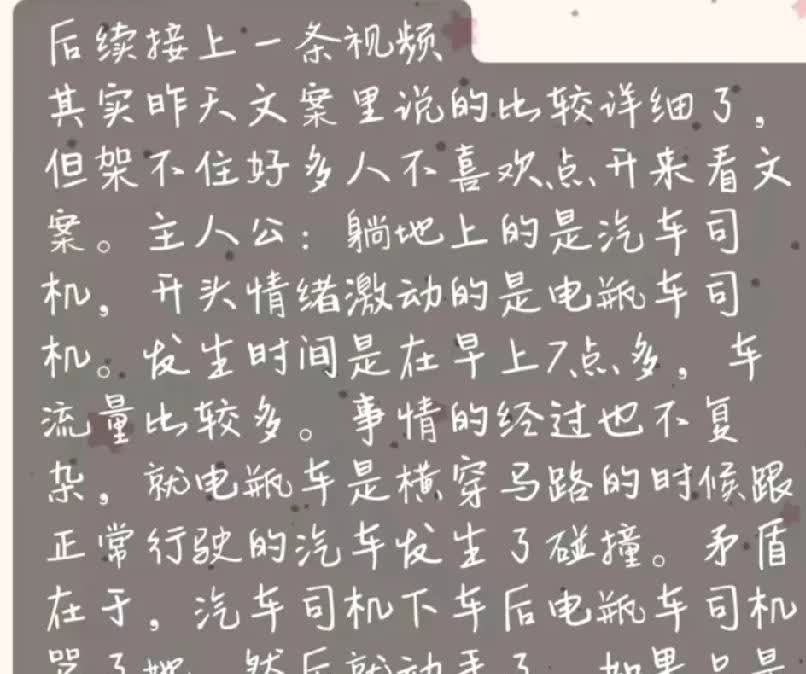 后续接上一条视频
其实昨天文案里说的比较详细了，
但架不住好多人不喜欢点开来看文
案。主人公：躺地上的是汽车司
机，开头情绪激动的是电瓶车司
机。发生时间是在早上7点多，车
流量比较多。事情的经过也不复
杂，就电瓶车是横穿马路的时候跟
正常行驶的汽车发生了碰撞。矛盾
在于，汽车司机下车后电瓶车司机
骂了她，然后就动手了，如果只是